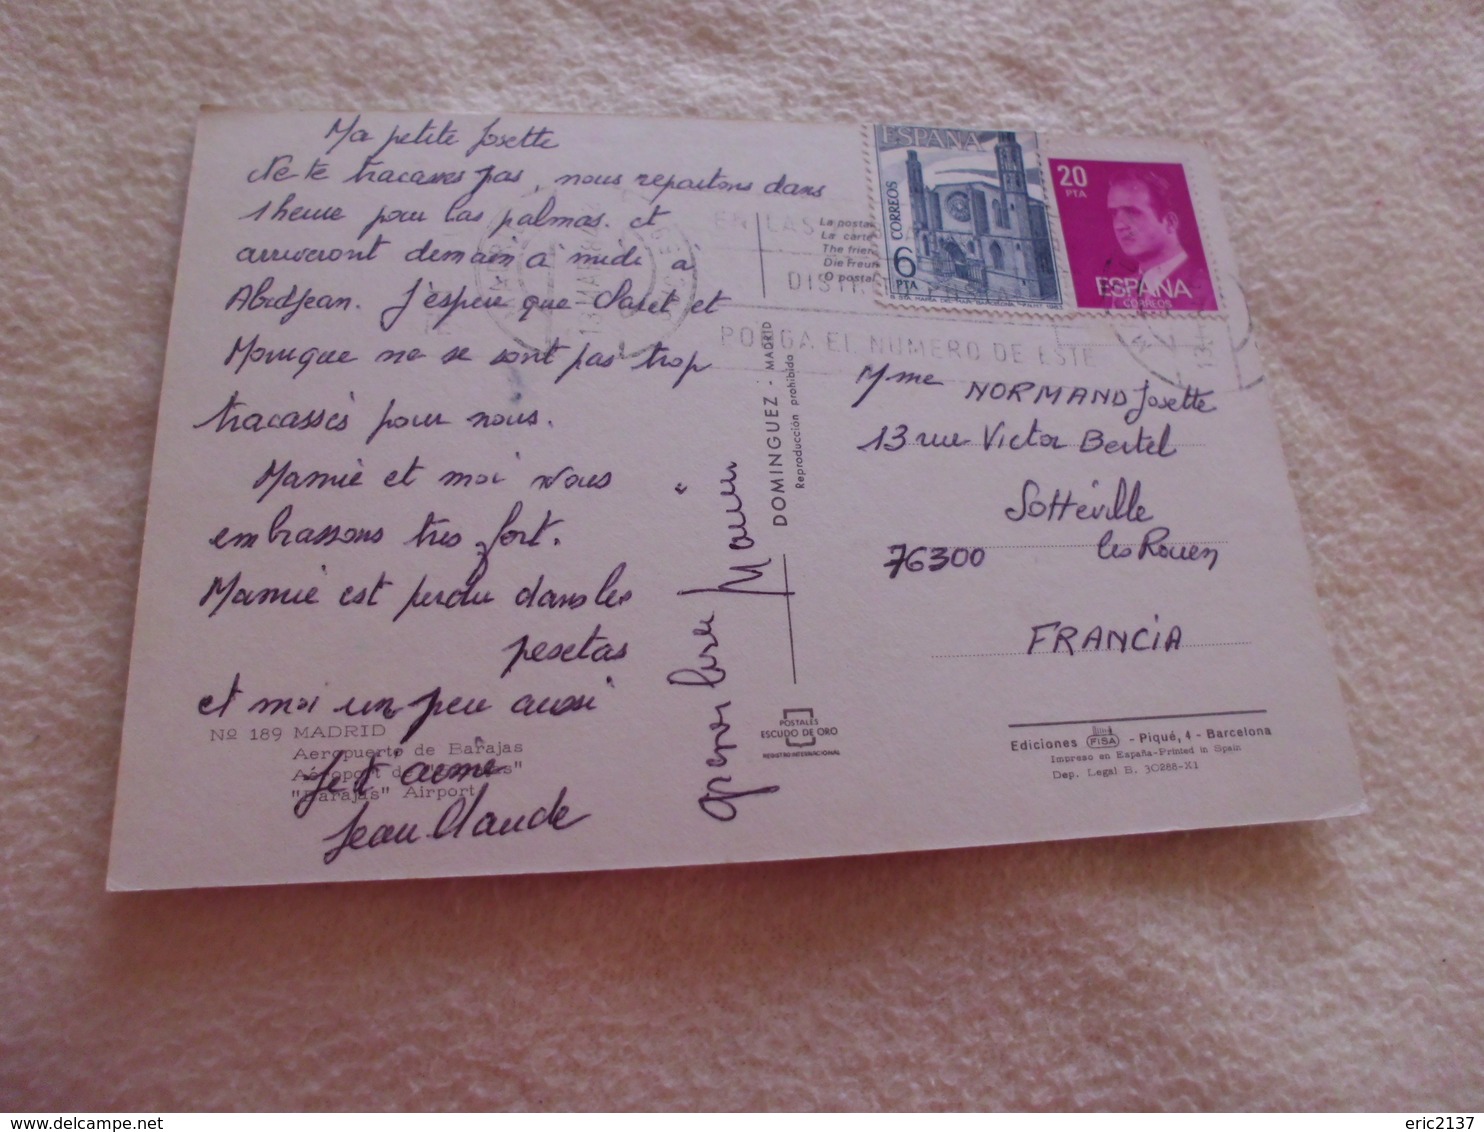 Ma petite Josette
Ne te tracasses pas, nous repartons dans
1 heure pour las palmas. et
arriveront demain à midi à
Abidjean. J'espère que Claret et
Monique ne se sont pas trop
tracassés pour nous.
Mamie et moi Nous
embrassons tres fort.
Mamie est perdu dans les
pesetas
et moi un peu aussi
Je t'aime
Jean Claude
gros bisle Mamie
Nº 189 MADRID
Aeropuerto de Barajas
Aéroport de
"Barajas" Airport
DOMINGUEZ - MADRID
Reproducción prohibida
POSTALES
ESCUDO DE ORO
REGISTRO INTERNACIONAL
La postal
La carte
The frien
Die Freun
O postal
EN LAS
DIST
PONGA EL NUMERO DE ESTE
ESPAÑA
CORREOS
6
PTA
20
PTA
ESPAÑA
CORREOS
Mme NORMAND Josette
13 rue Victor Bertel
Sotteville
les Rouen
76300
FRANCIA
Ediciones FISA - Piqué, 4 - Barcelona
Impreso en España-Printed in Spain
Dep. Legal B. 30288-XI
eric2137